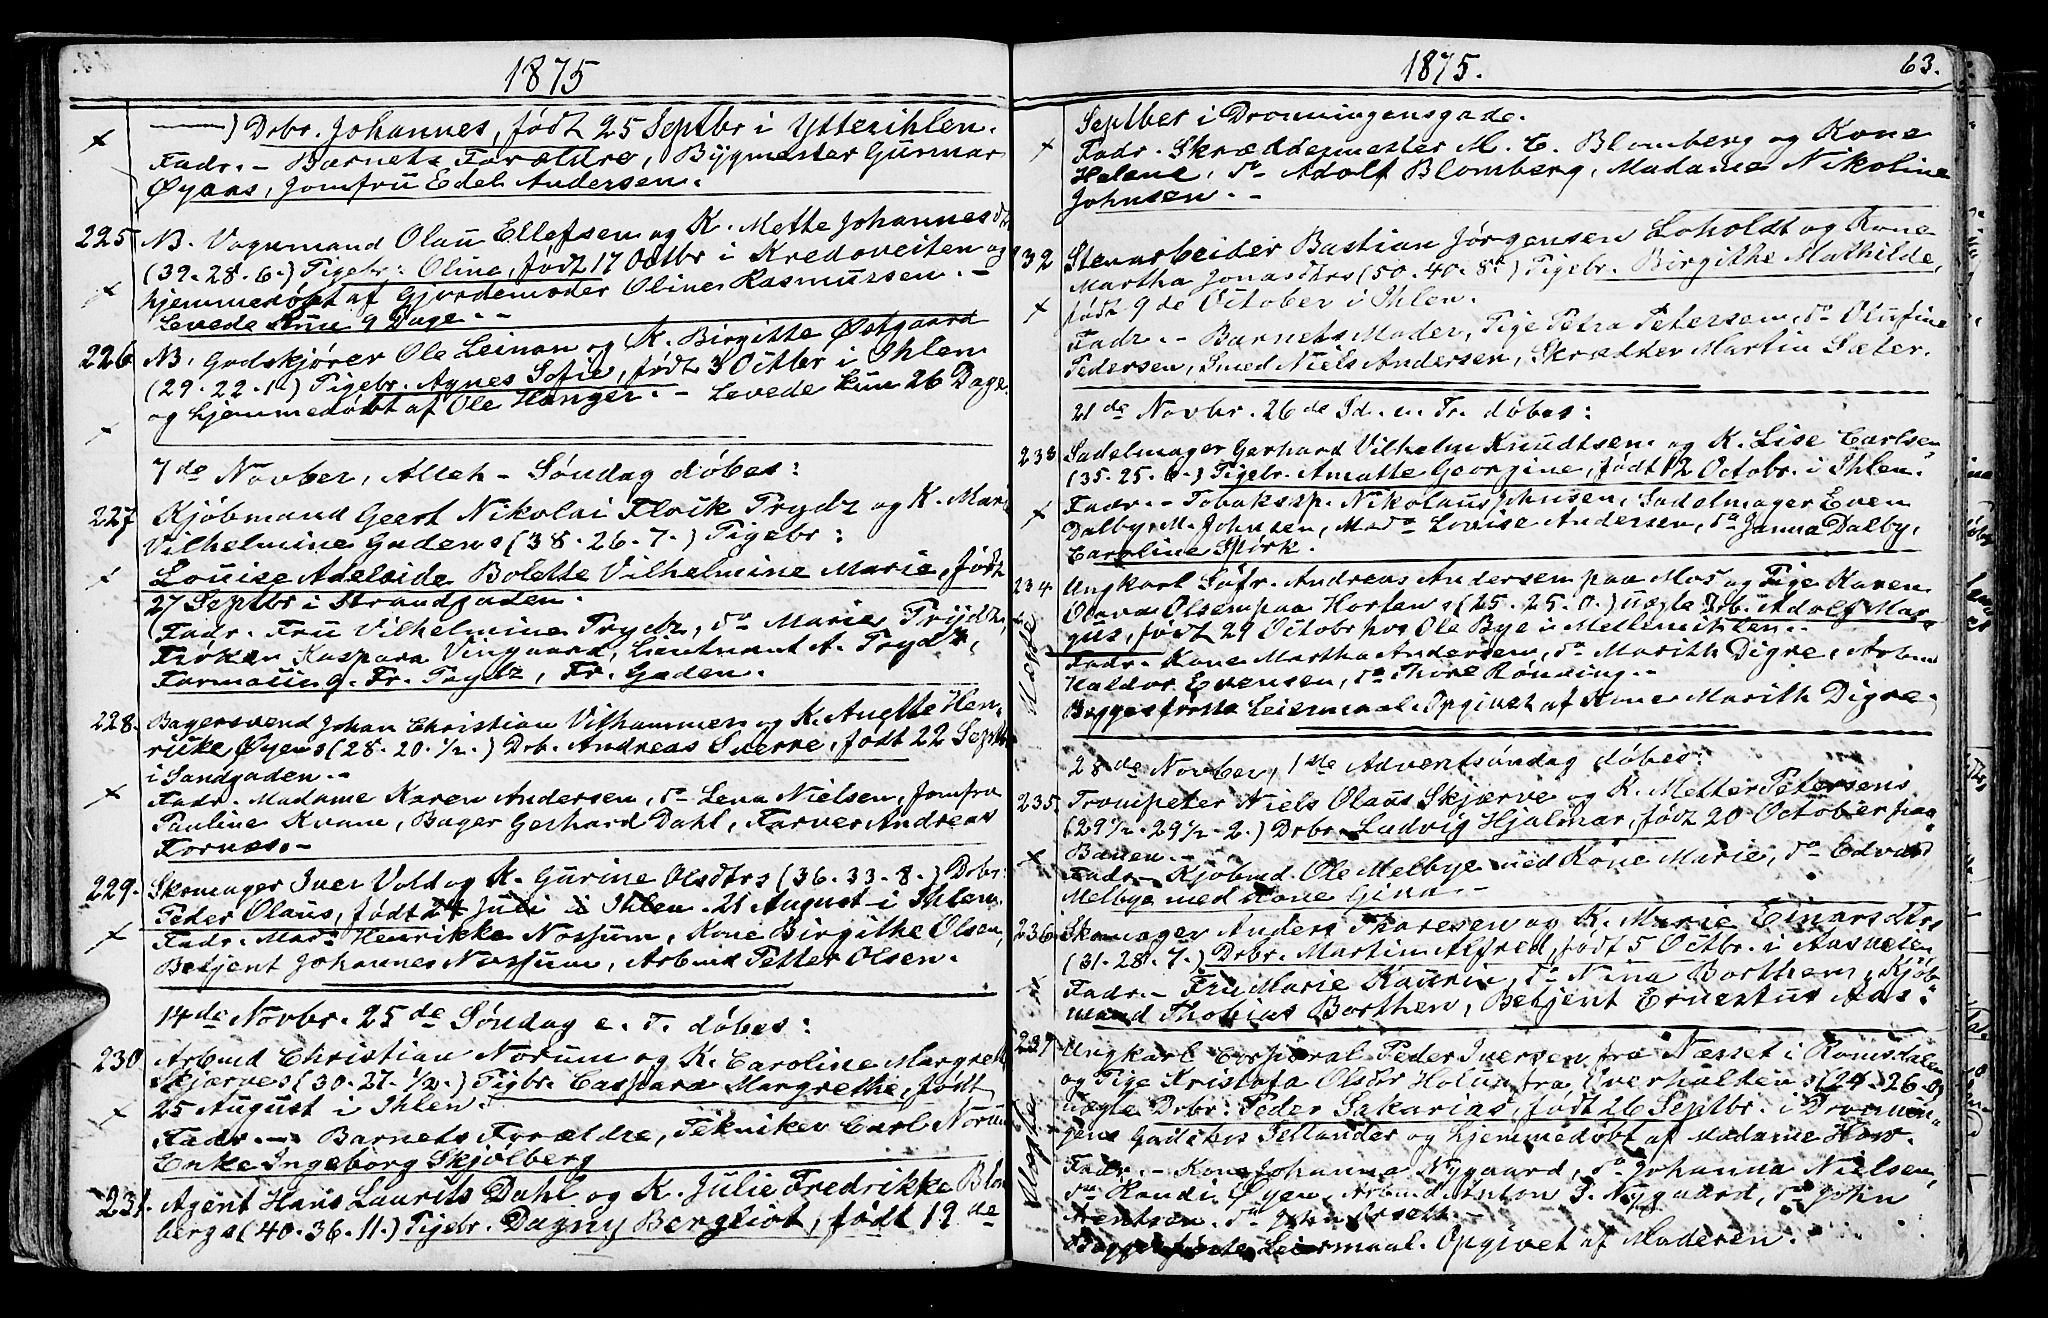 1875
—) Drbr. Johannes, født 25 Septbr i Ytterihlen.
Fadr. - Barnets Forældre, Bygmester Gunnar
Øyaas, Jomfru Edel Andersen.
225 NB. Vognmand Olaü Ellefsen og K. Mette Johannesdtr
(39-28-6.) Pigebr: Olina, født 17 Octbr i Kredoveiten og
hjemmedøbt af Gjordemoder Oline Rasmussen. -
Levede kun 9 Dage. -
226 NB. Godskjører Ole Leinan og K. Birgitte Østgaard
(29-22-1-) Pigebr. Agnes Sofie, født 3 Octbr i Ihlen
og hjemmedøbt af Ole Hanger. - Levede kun 26 Dage.
7de Novber, Alleh-Søndag døbes:
227 Kjøbmand Geert Nikolai Flvik Trydz og K. Mari
Vilhelmine Gadens (38-26-7.) Pigebr:
Louise Adelaide Bolette Vilhelmine Marie, født
27 Septbr i Strandgaden.
Fadr. Fru Vilhelmine Trydz, do Marie Trydz,
Frøken Kaspara Vingaard, Lieutnant A. Trydz,
Farmaüing. Fr. Trydz, Fr. Gaden.
228. Bagersvend Johan Christian Vithammer og K. Anette Hen-
rikke Øyens (28-20-½.) Drb. Andreas Sverre, født 22 Septbr
i Sandgaden. -
Fadr. Madame Karen Andersen, do Lena Nielsen, Jomfru
Pauline Kvam, Bager Gerhard Dahl, Farver Andreas
Fornæs. -
229. Skomager Iver Vold og K. Gurine Olsdtrs (36-33-8.) Drbr:
Peder Olaus, født 24 Juli i Ihlen. 21 August i Ihlen.
Fadr. Mad: Henrikke Nossum, Kone Birgithe Olsen,
Betjent Johannes Nossum, Arbmd Petter Olsen.
14de Novbr. 25de Søndag e. T. døbes:
230 Arbmd Christian Norum og K. Caroline Margrethe
Skjærves (30-27-½.) Pigbr. Caspara Margrethe, født
25 August i Ihlen.
Fadr. - Barnets Forældre, Tekniker Carl Norum
Enke Ingeborg Skjølberg
231. Agent Hans Laurits Dahl og K. Julie Fredrikke Blom
bergs (40-36-11.) Pigebr. Dagny Bergliot, født 19de
1875. 63.
Septber i Dronningensgade.
Fadr. Skræddermester M. C. Blomberg og Kone
Helene, do Adolf Blomberg, Madame Nikoline
Johnsen. -
232 Stenarbeider Bastian Jørgensen Loholdt og Kone
Martha Jonasdtrs (50-40-8.) Pigebr. Birgitte Mathilde,
født 9de October i Ihlen.
Fadr. - Barnets Moder, Pige Petra Petersen, do Olufine
Pedersen, Smed Niels Andersen, Skrædder Martin Sæter.
21de Novbr. 26de Sd. e. Tr. døbes:
233 Sadelmager Gerhard Vilhelm Knudtsen og K. Lise Carlsen
(35-25-6-) Pigebr. Amatte Georgine, født 12 Octobr. i Ihlen.
Fadr. - Tobakssp. Nikolaus Johnsen, Sadelmager Even
Dalby, Johnsen, Mado Lovise Andersen, do Janna Dalby,
Caroline Spörk.
234. Ungkarl Søfr. Andreas Andersen paa Mos og Pige Karen
Olava Olsen paa Horten (25-25-0.) uægte Drb. Adolf Mar-
gus, født 29 Octobr hos Ole Bye i Mellemihlen.
Uægte
Fadr. Kone Martha Andersen, do Marith Digre, Arbmd
Haldor Evensen, do Thore Rønning. -
Begges første Leiermaal. Opgivet af Kone Marith Digre.
28de Novber, 1ste Adventsøndag døbes:
235. Trompeter Niels Olaus Skjærve og K. Mette Petersens
(29½-29½-2.) Drbr. Ludvig Hjalmar, født 20 October paa
Banen. -
Fadr. - Kjøbmd Ole Melbye med Kone Marie, do Edvard
Melbye med Kone Gina. -
236. Skomager Anders Tharesen og K. Marie Einarsdtrs
(31-28-7.) Drbr. Martin Alfred, født 5 Octbr. i Aasveien
Fadr. - Fru Marie Kaurin, do Nina Borthen, Kjøb-
mand Thobias Borthen, Betjent Ernestus Aas.
237 Ungkarl Corporal Peder Iversen fra Næsset i Romsdalen
og Pige Kristofa Olsdtr Holum fra Overhalden (24-26-0)
Uægte
uægte Drbr. Peder Sakarias, født 26 Septbr. i Dronnin-
gens Gade hos Sellander og hjemmedøbt af Madame How.
Fadr. - Kone Johanna Nygaard, do Johanna Nielsen,
do Randi Øyen, Arbmd Anton J. Nygaard, do John
Arentsen, do John Orsett. -
Begges første Leiermaal. Opgivet af Moderen.